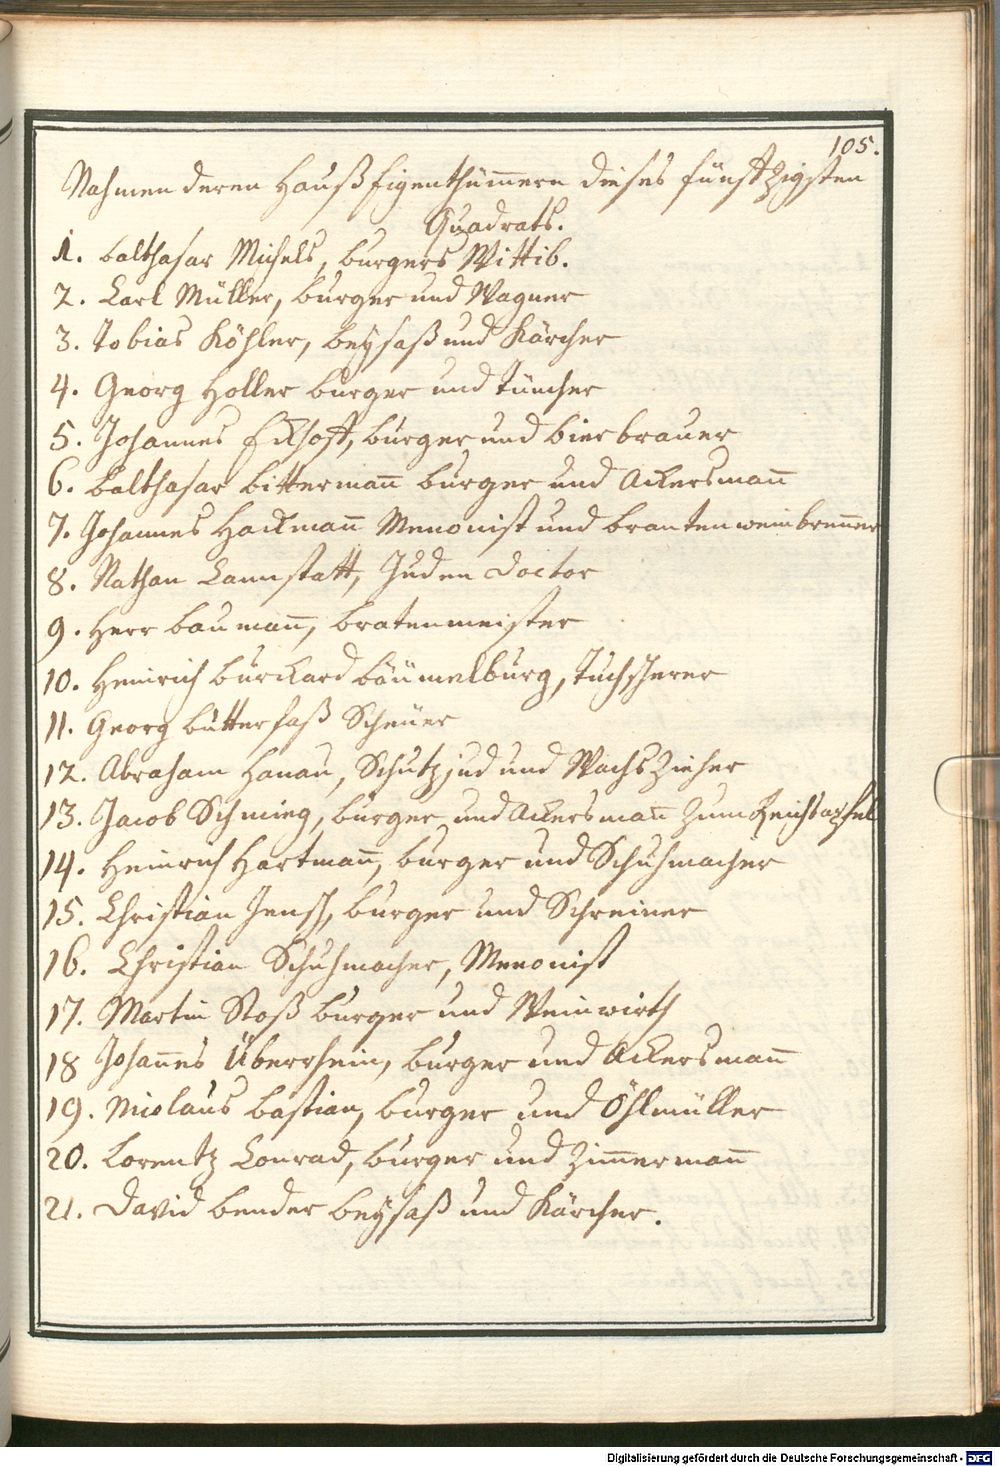 105.
Nahmen deren Hauß Eigenthümmern dieses fünftzigsten
Quadrats.
1. balthasar Michels, burgers Wittib.
2. Carl Müller, burger und Wagner
3. Tobias Köhler, beysaß und Kärcher
4. Georg Holler burger und Tüncher
5. Johannes Eckhoff, burger und bierbrauer
6. balthasar bittermann burger und Ackersmann
7. Johannes Hackmann Menonist und brantenweinbrenner
8. Nathan Cannstatt, Juden Doctor
9. Herr baumann, bratenmeister
10. Heinrich burckard bäumelburg, Tuchscherer
11. Georg butterfaß Scheüer
12. Abraham Hanau, Schutzjud und WachsZieher
13. Jacob Schmieg, burger und Ackersmann Zum Reichsapfel
14. Heinrich Hartmann, burger und Schuhmacher
15. Christian Jensch, burger und Schreiner
16. Christian Schuhmacher, Menonist
17. Martin Stoß burger und Weinwirth
18 Johannes Überrhein, burger und Ackersmann
19. Nicolaus bastian, burger und Öhlmüller
20. Lorentz Conrad, burger und Zimmermann
21. David bender beysaß und Kärcher.
Digitalisierung gefördert durch die Deutsche Forschungsgemeinschaft - DFG